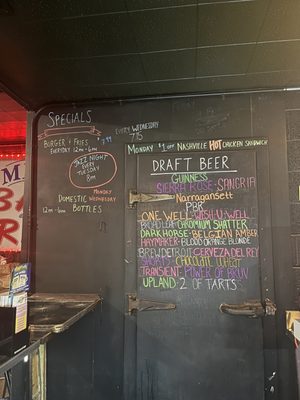 SPECIALS
BURGER & FRIES 7.99
EVERYDAY 12PM-6PM
JAZZ NIGHT
EVERY
TUESDAY
8PM
DOMESTIC
MONDAY
WEDNESDAY
12PM-6PM BOTTLES
EVERY WEDNESDAY
MONDAY $1 OFF NASHVILLE HOT CHICKEN SANDWICH
DRAFT BEER
GUINNESS
SIERRA ROSE-SANGRIA
NARRAGANSETT
PBR
ONE WELL-WISH-U-WELL
CHROMIUM SHATTER
DARKHORSE-BELGIAN AMBER
HAYMAKER-BLOOD ORANGE BLONDE
BREW DETROIT-CERVEZA DEL REY
SHORTS-CHOCOLATE WHEAT
TRANSIENT-POWER OF BRUV
UPLAND-2 OF TARTS
BAR